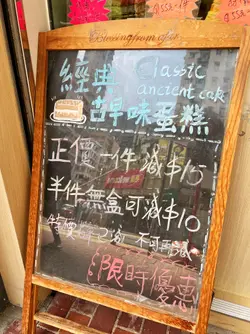 Blessing from above
經典 Classic
ancient cake
古早味蛋糕
正價一件減$15
半件無盒可減$10
限時優惠